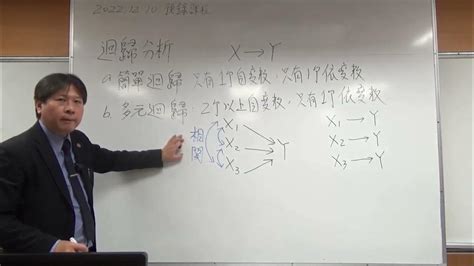 2022.12.10
迴歸分析 X→Y
a. 簡單迴歸 只有1个自变权,只有1个依变权
b. 多元迴歸 2个以上自变权,只有1个依变权
相関
X₁
X₂
X₃
Y
X₁→Y
X₂→Y
X₃→Y